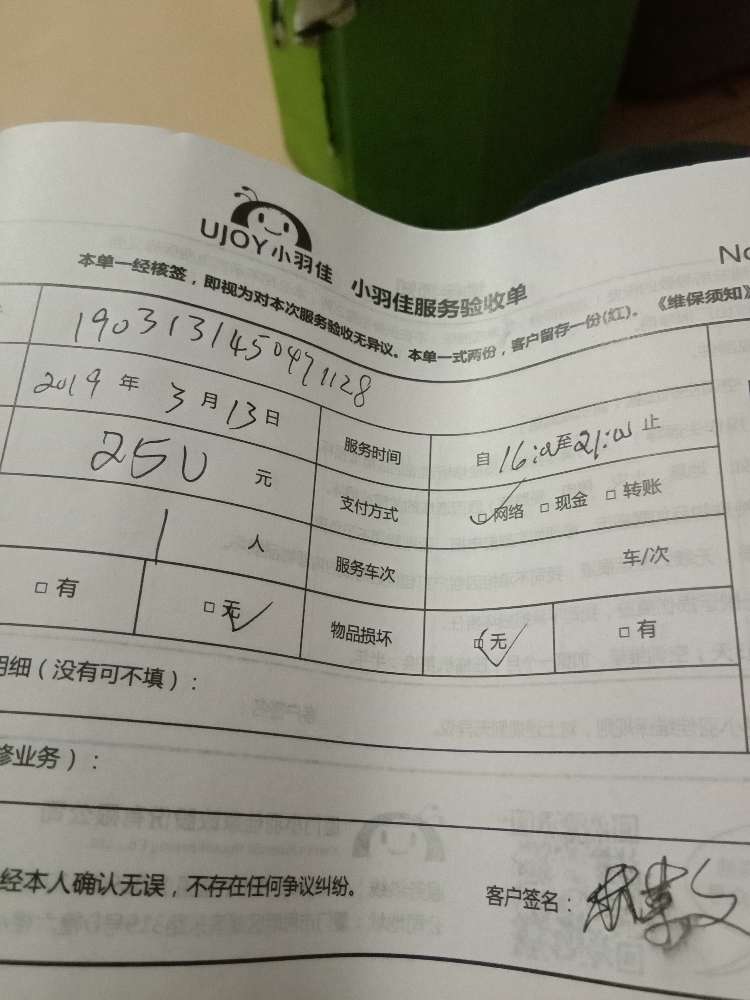 UJOY小羽佳 小羽佳服务验收单
No
本单一经核签，即视为对本次服务验收无异议。本单一式两份，客户留存一份(红)。《维保须知》
19031314504971128
2019 年 3 月 13 日 服务时间 自 16:00 至 21:00 止
250 元 支付方式 □网络 □现金 □转账
1 人 服务车次 车/次
□有 □无 物品损坏 □无 □有
明细（没有可不填）：
修业务）：
经本人确认无误，不存在任何争议纠纷。 客户签名：